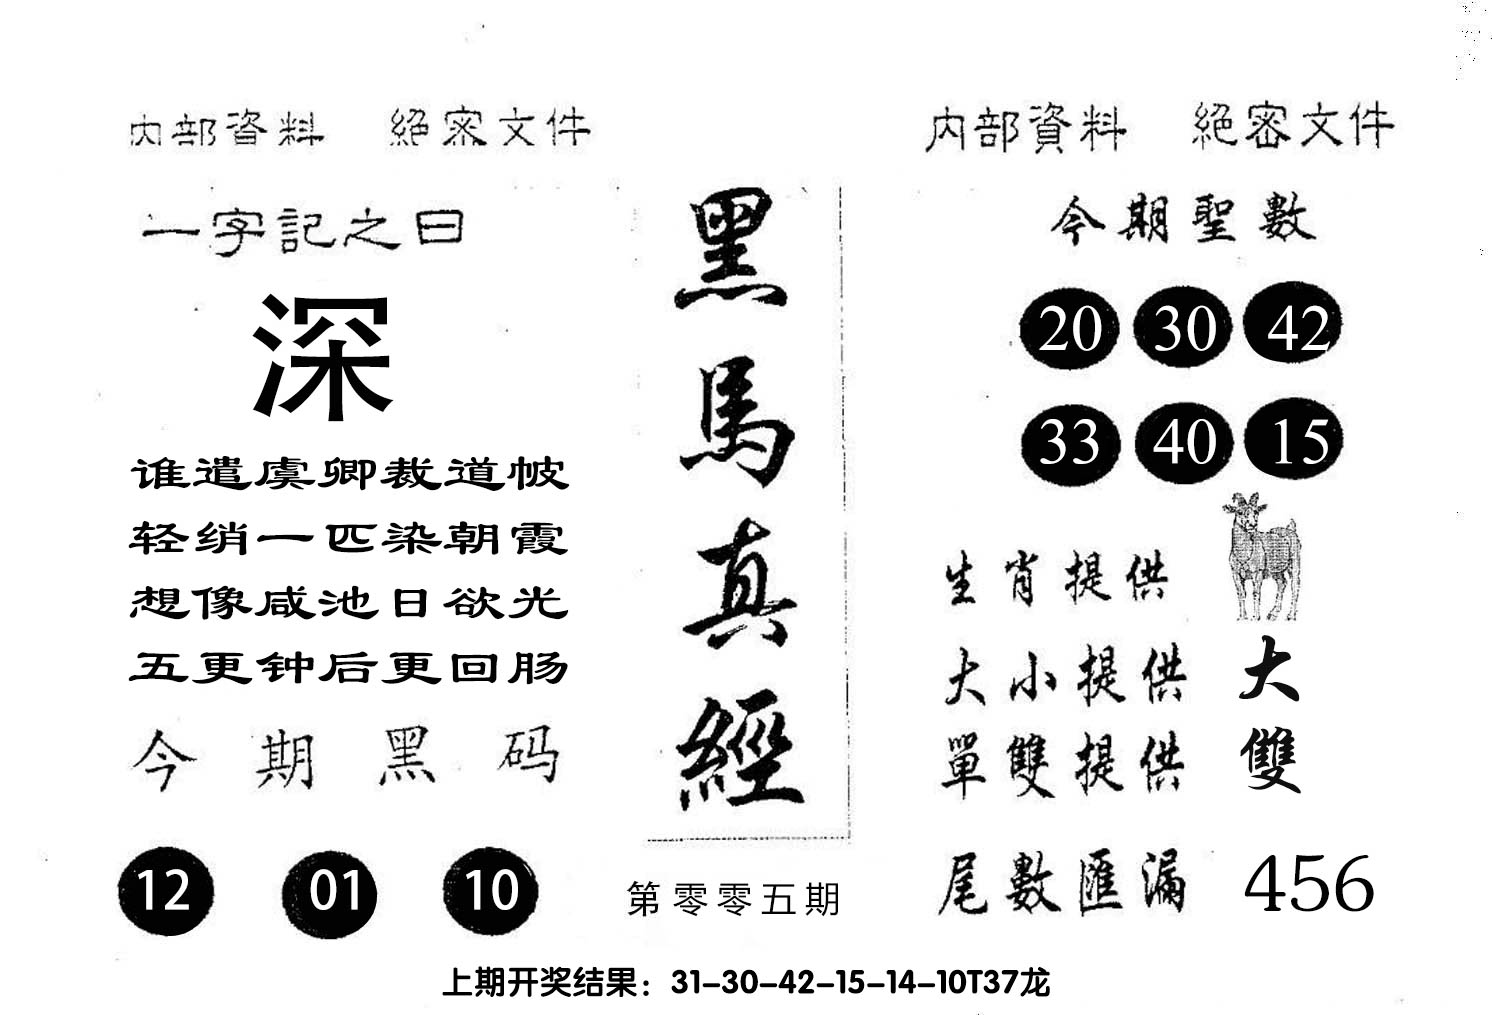 内部資料 絕密文件
一字記之曰
深
谁遣虞卿裁道帔
轻绡一匹染朝霞
想像咸池日欲光
五更钟后更回肠
今期黑码
12 01 10
黑馬真經
第零零五期
内部資料 絕密文件
今期聖數
20 30 42
33 40 15
生肖提供
大小提供 大
單雙提供 雙
尾數匯漏 456
上期开奖结果：31-30-42-15-14-10T37龙